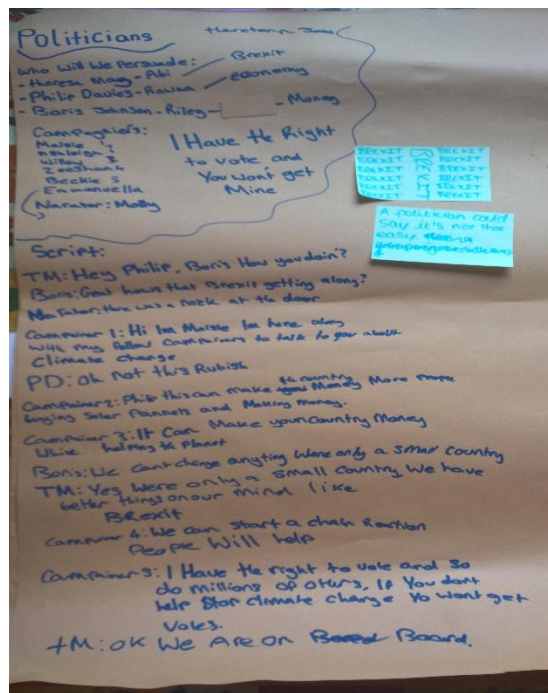 Politicians
Who Will We Persuade:
- theresa May - Abi
Brexit
- Philip Davies - Rawan
economy
- Boris Johnson - Riley -
- Money
Campagniers:
Maisie
Willow 3
Zeeshan 4
Beckie 5
Emmanuella
Narator: Molly
I Have the Right
to vote and
You wont get
Mine
BREXIT BREXIT
BREXIT BREXIT
BREXIT BREXIT
BREXIT BREXIT
BREXIT BREXIT
BREXIT
A politician could
say it's not that
easy
Script:
TM: Hey Philip, Boris How you doin'?
Boris: Great hows that Brexit getting along?
Narator: there was a nock at the door
Campainer 1: Hi Im Maisie Im here along
with my fellow campainers to talk to you about
Climate change
PD: oh not this Rubish
Campainer 2: Philip this can make the country Money More People
buying Soler Pannels and Making money.
Campainer 3: It Can Make your country Money
While helping the Planet
Boris: We cant change anyting Were only a small country
TM: Yes Were only a small country, We have
better things on our mind like
BRexit
Campainer 4: We can start a chain Reaction
People Will help
Campainer 5: I Have the right to vote and so
do millions of oters, If You dont
help Stop climate change Yo wont get
Votes.
TM: OK We Are on Board.